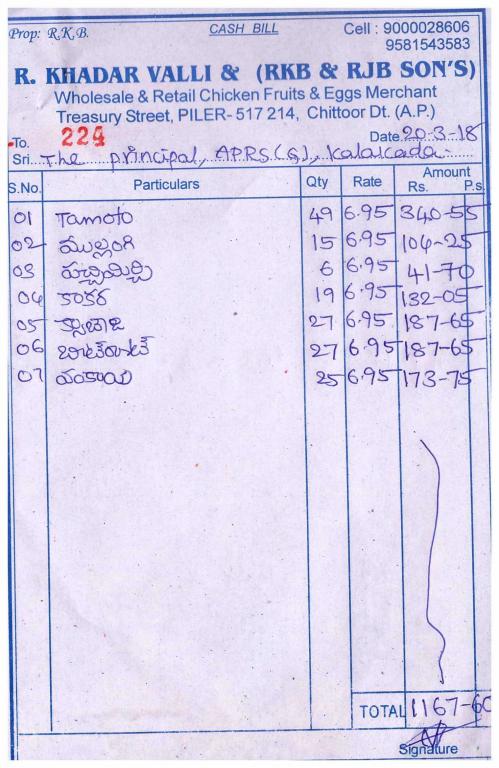 Prop: R.K.B.
CASH BILL
Cell : 9000028606
9581543583
R. KHADAR VALLI & (RKB & RJB SON'S)
Wholesale & Retail Chicken Fruits & Eggs Merchant
Treasury Street, PILER- 517 214, Chittoor Dt. (A.P.)
To. 224 Date 20-3-18
Sri The principal, APRS(G), Kalakada
S.No. Particulars Qty Rate Amount
Rs. P.s.
01 Tamoto 49 6.95 340-55
02 ముల్లంగి 15 6.95 104-25
03 పచ్చిమిర్చి 6 6.95 41-70
04 కాకర 19 6.95 132-05
05 క్యాబాజి 27 6.95 187-65
06 27 6.95 187-65
07 వంకాయ 25 6.95 173-75
TOTAL 1167-60
Signature